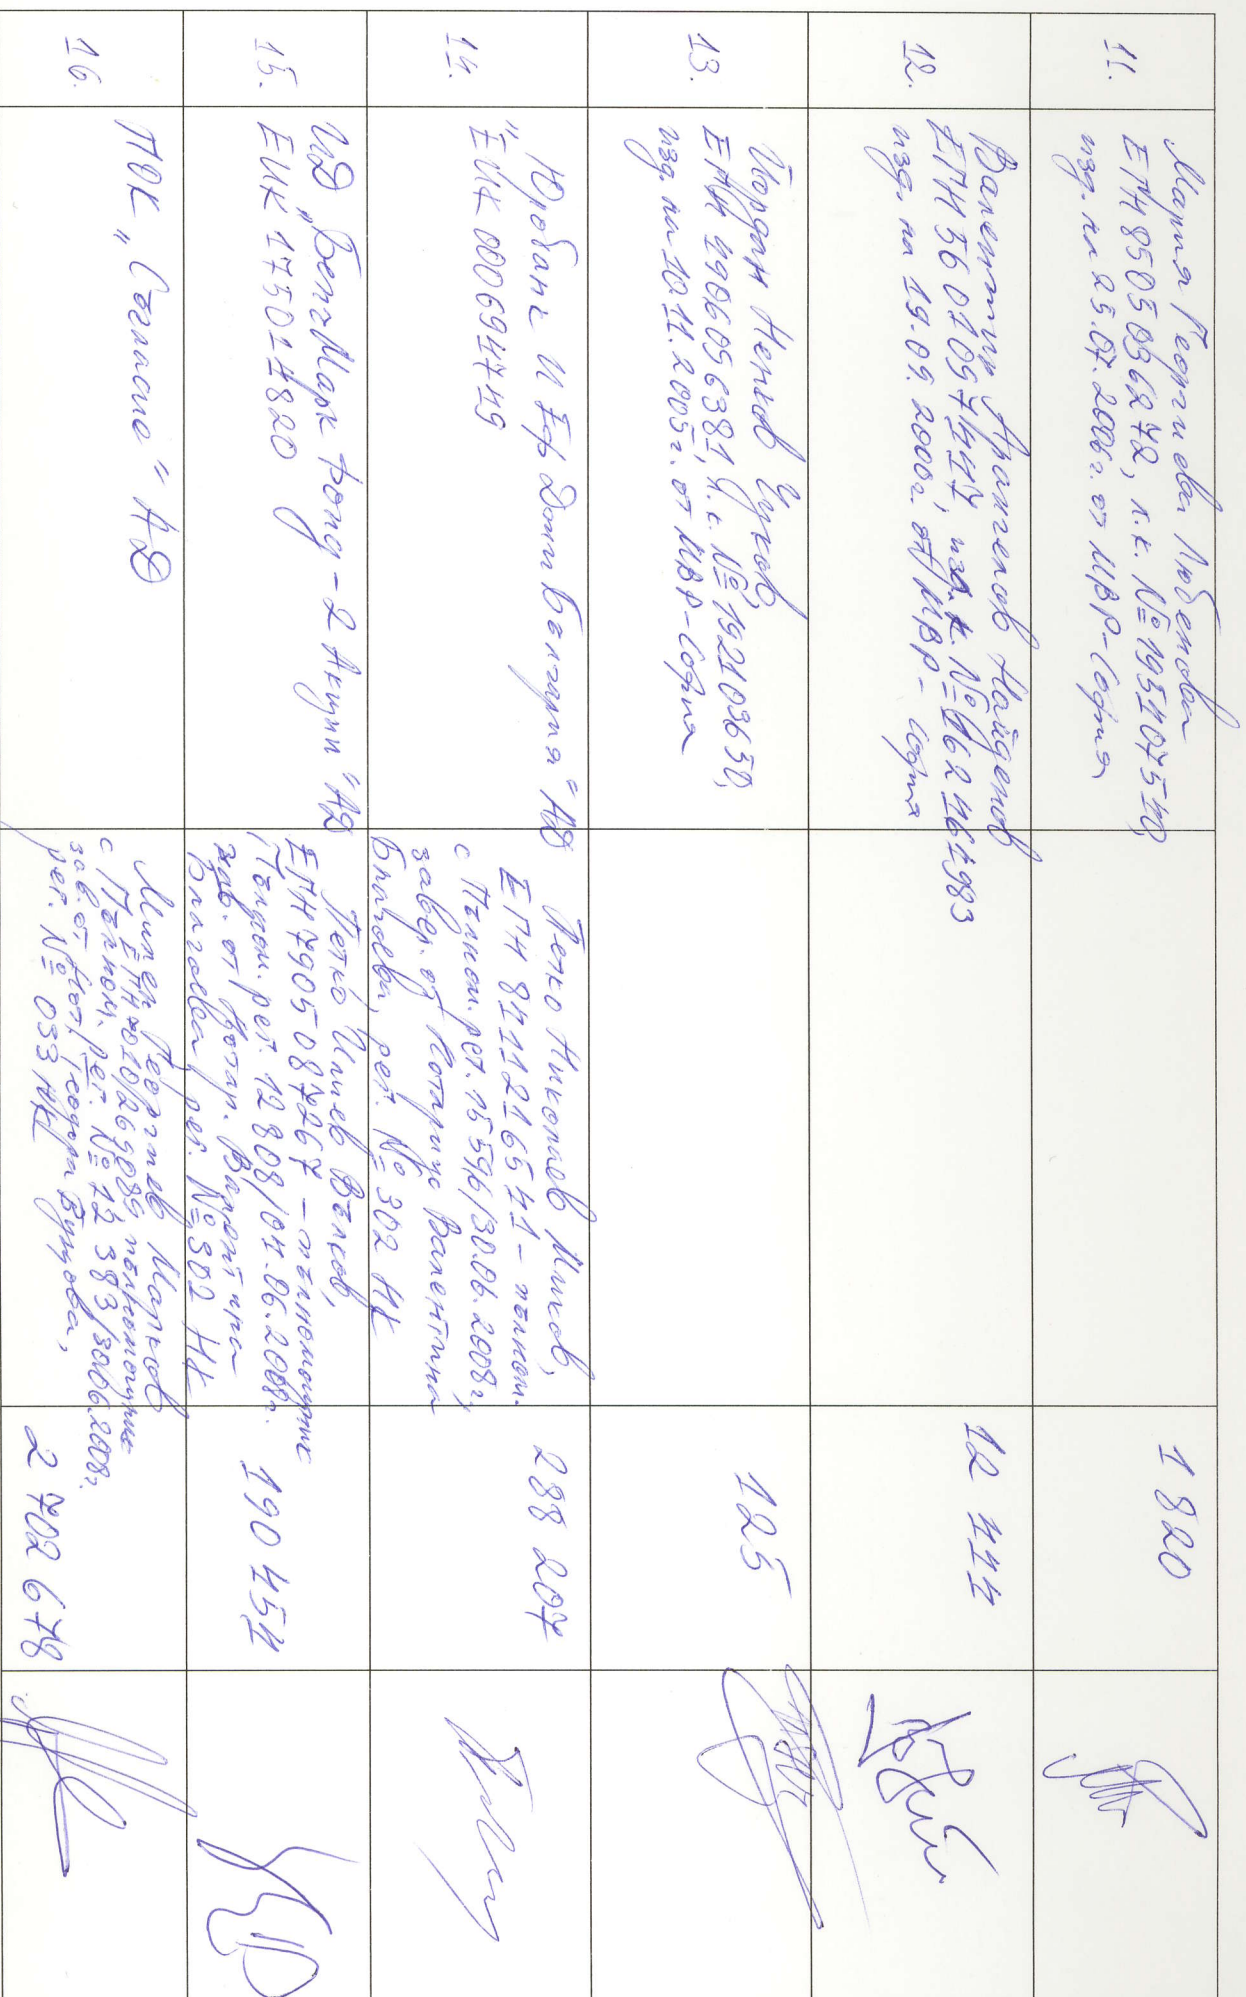 11.
Мария Георгиева Любенова
ЕГН 8505036272, л.к. №193107510,
изд. на 25.07.2006г. от МВР-София
1 820
12.
Валентин Ангелов Найденов
изд. на 19.09.2000г. от МВР - София
12 444
13.
Йордан Ненков
ЕГН 4906056381, л.к. №192103630,
изд. на 10.11.2005г. от МВР-София
125
14.
"Юробанк И Еф Джи България" АД
ЕИК 000694749
Петко Николов
ЕГН 8411216541 - пълном.
с Пълном. рег. 15596/30.06.2008г.,
завер. от Нотариус Валентина
Благоева, рег. №302 НК
288 207
15.
ИД "БенчМарк Фонд - 2 Акции" АД
ЕИК 175014820
Петко Илиев Вълков,
ЕГН 7905087267 - пълномощие
Пълном. рег. 12808/04.06.2008г.
зав. от Нотар. Валентина
Благоева, рег. №302 НК
190 454
16.
ПОК „Съгласие" АД
Милен Георгиев Марков
пълномощие
с Пълном. рег. № 12 383/30.06.2008г.
зав. от Нот.
рег. № 033 НК
2 702 678